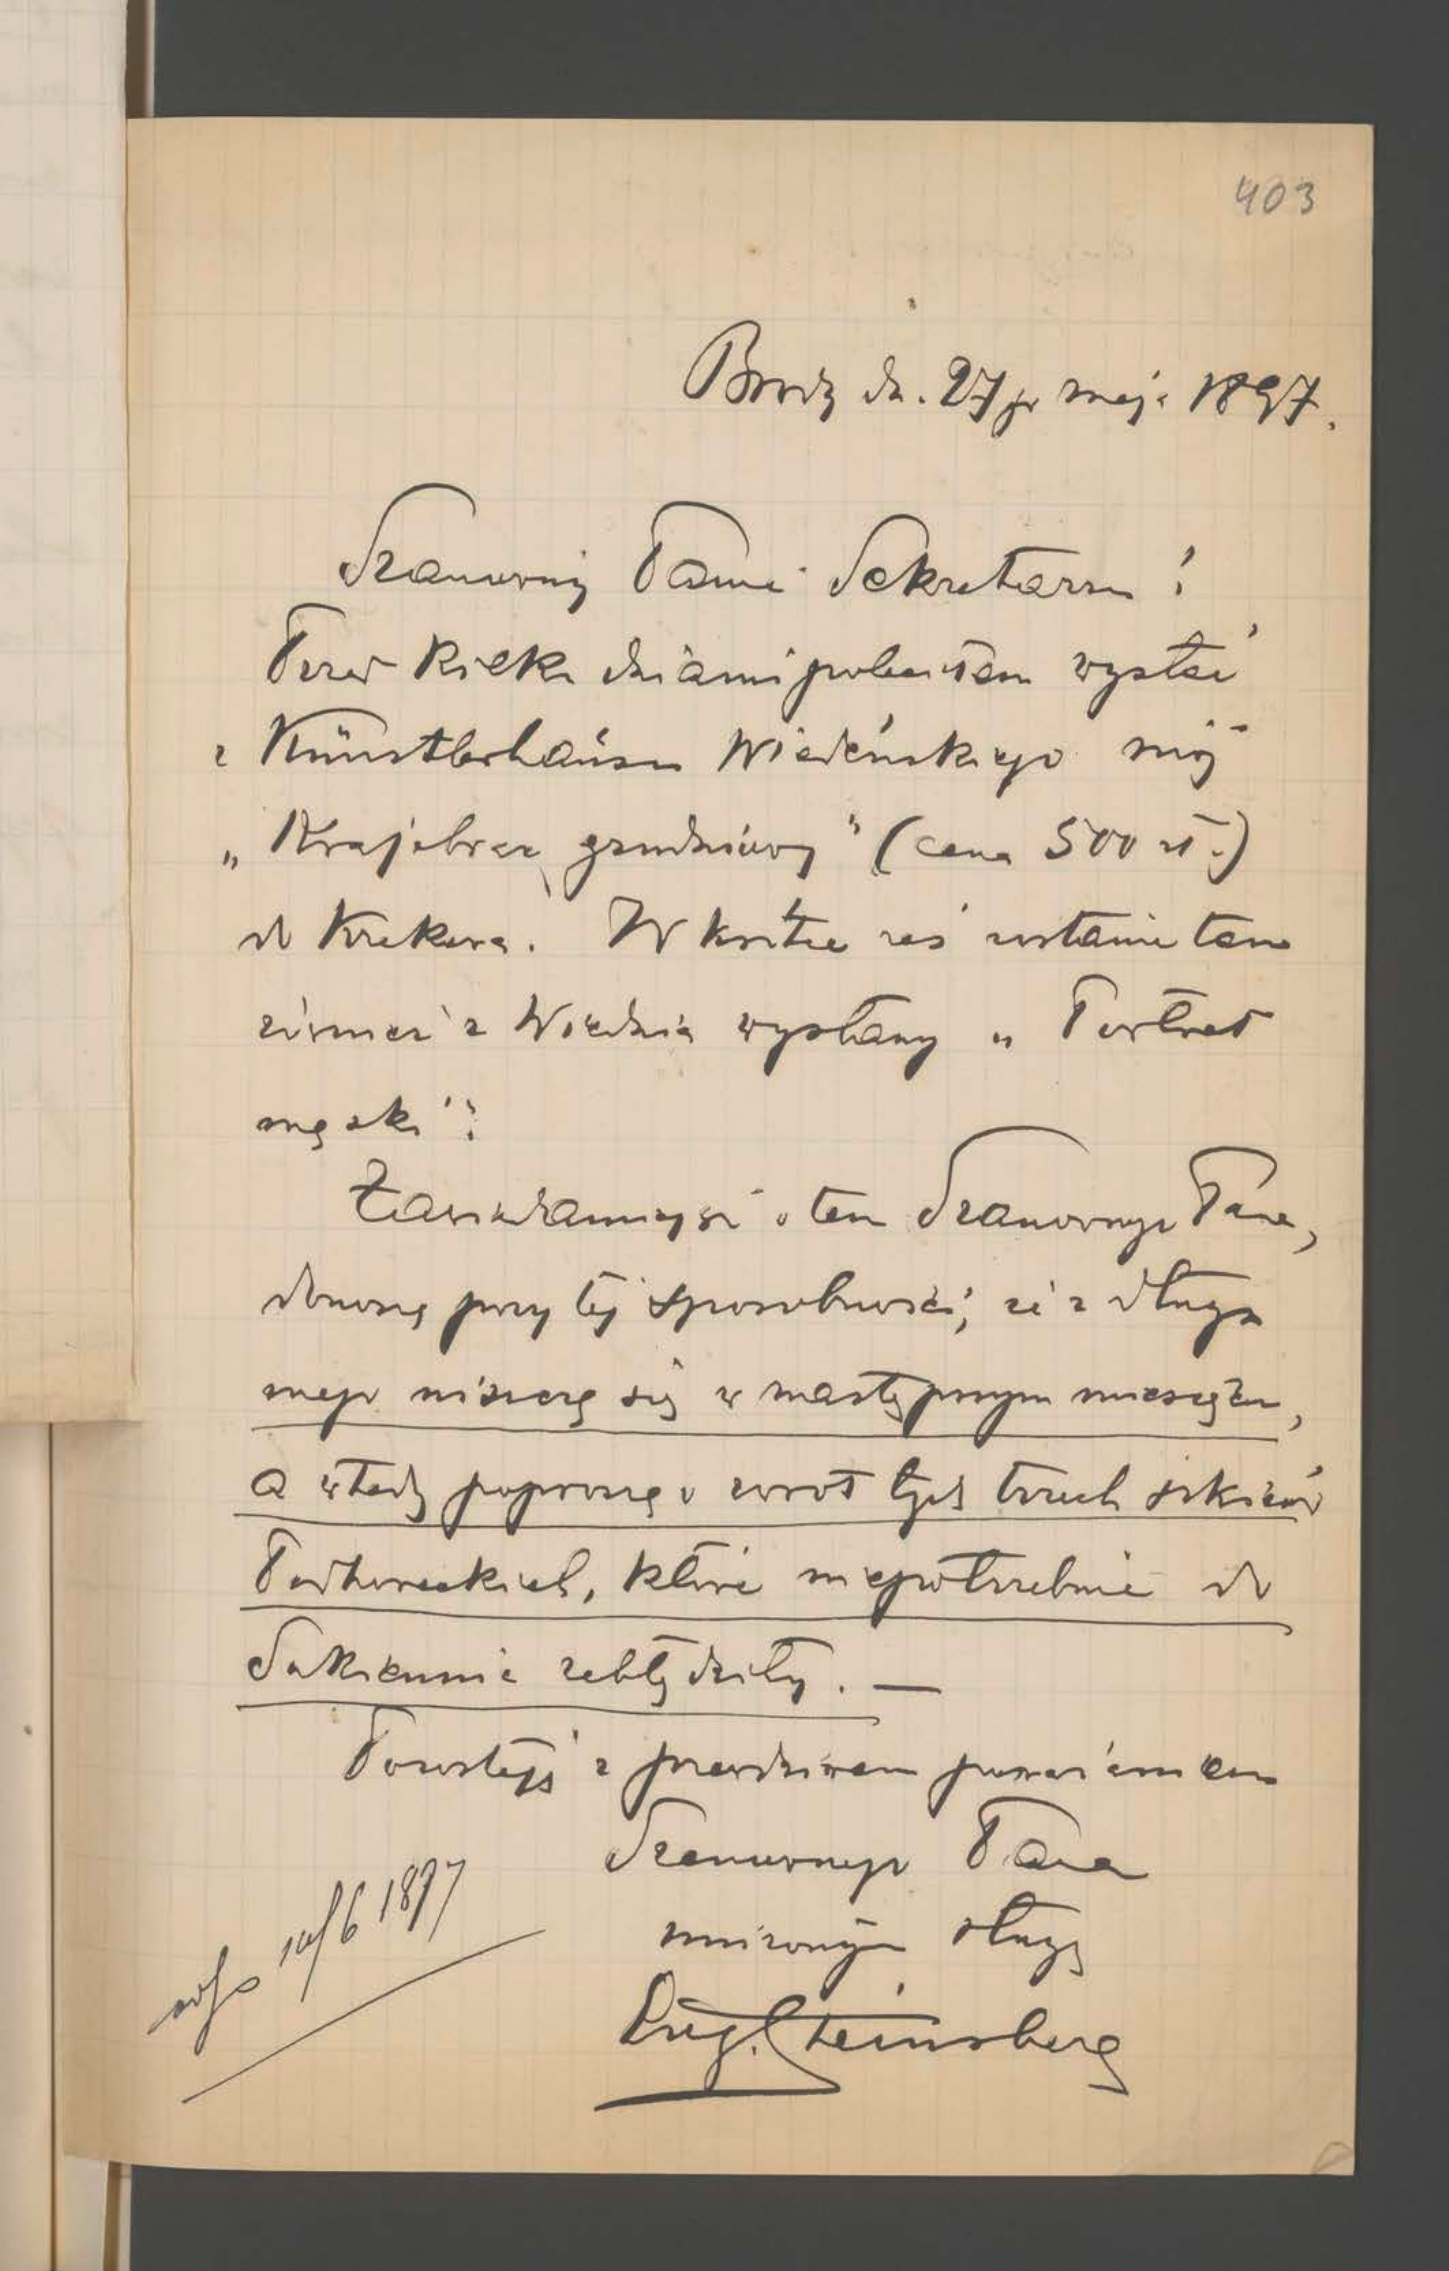 403
Brody dn. 27go maja 1897.
Szanowny Panie Sekretarzu!
Przed kilku dniami poleciłem wysłać
z Künstlerhausu Wiedeńskiego mój
„Krajobraz grudniowy" (cena 500 zł.)
do Krakowa. W krótce zaś zostanie tam
również z Wiednia wysłany „Portret
męski".
Zawiadamiając o tem Szanownego Pana,
donoszę przy tej sposobności, że z długu
mego uiszczę się w następnym miesiącu,
a wtedy poproszę o zwrot tych trzech szkiców
Podhoreckich, które niepotrzebnie do
Sukiennic zabłądziły. —
Pozostaję z prawdziwem poważaniem
Szanownego Pana
uniżonym sługą
Eug. Steinsberg
10/6 1897